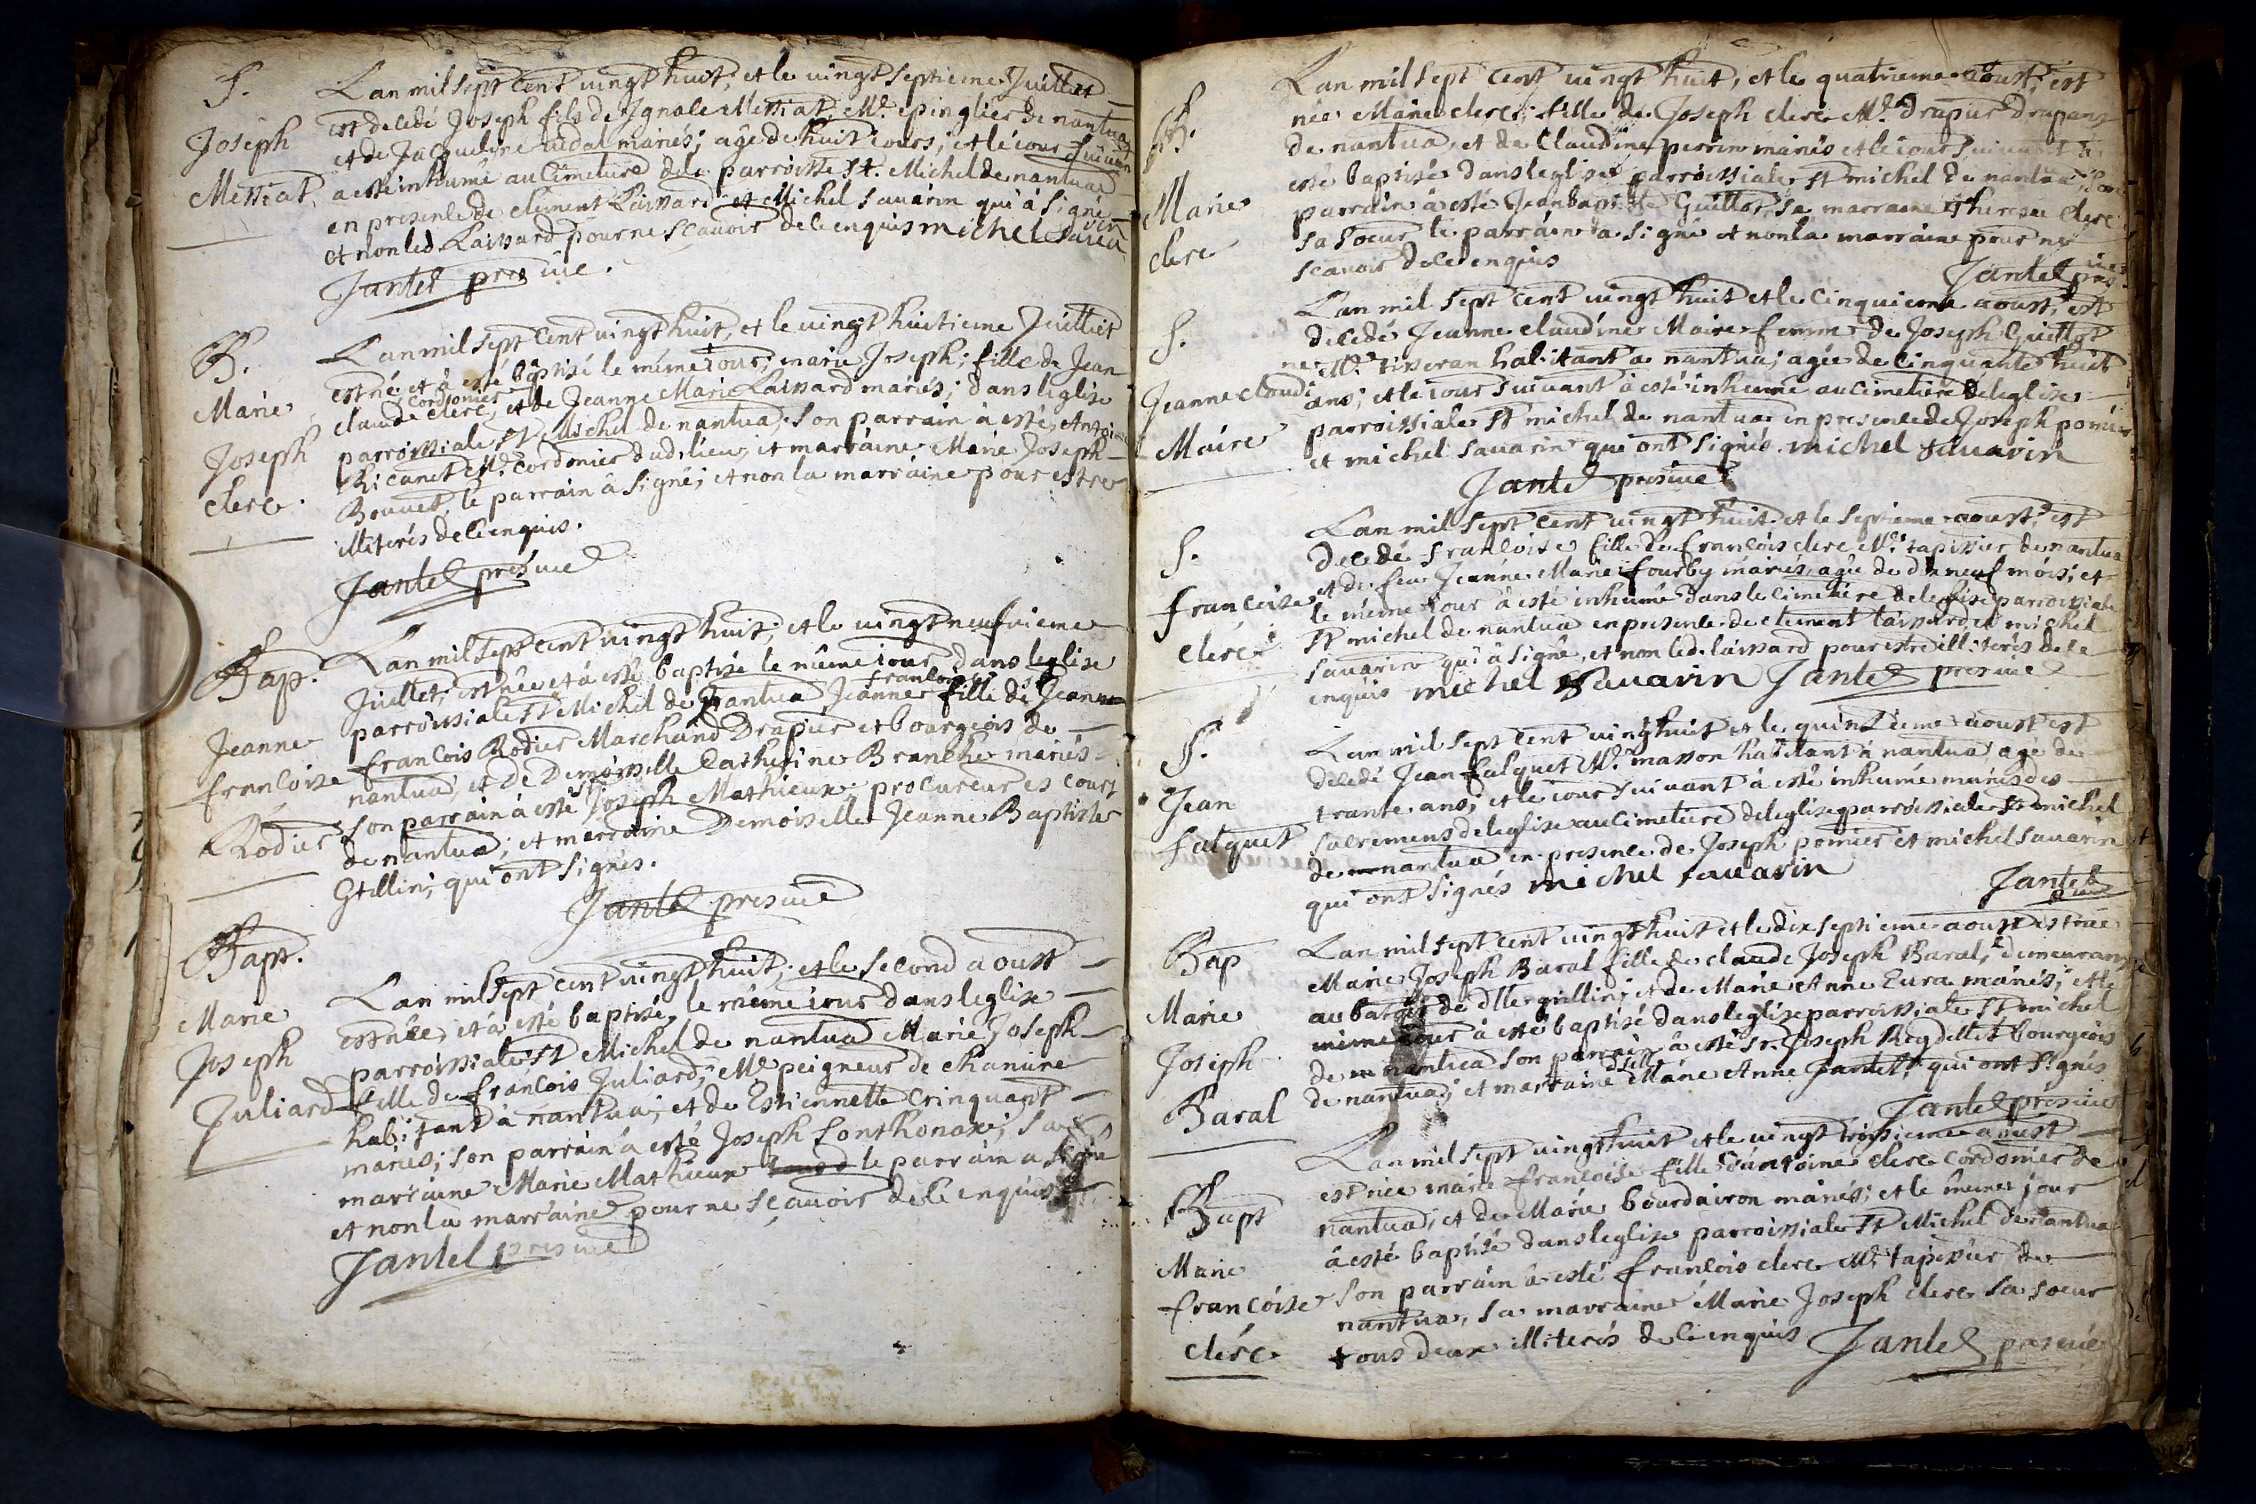 S.
Joseph
Messiat.
Lan mil sept cent vingt huit, et le vingt septieme Juillet
est decedé Joseph fils de Ignace Messiat, Me. epinglier de nantua
et de Jacqueline vidal mariés; agé de huit iours; et le iour suivant
a esté inhumé au Cimetiere de la parroisse St. Michel de nantua
en presence de clement Laissard et Michel Savarin qui à signé
et non led. Laissard pour ne scavoir de ce enquis michel Savarin
Jantet pres vic.
B.
Marie
Joseph
clerc.
Lan mil sept cent vingt huit, et le vingt huitieme Juilliet
est né et à esté baptisé le même iour; marie Joseph; fille de Jean
claude clerc, cordonier et de Jeanne Marie Laissard mariés; dans leglise
parroissiale St Michel de nantua, Son parrain à esté, Antoine
Ricanet Me. cordonier dud. lieu, et marraine Marie Joseph
Bouvet, le parrain à signé; et non la marraine pour estre
illiterés de ce enquis.
Jantet pres vic
Bap.
Jeanne
francoise
Rodier
Lan mil sept cent vingt huit; et le vingt neufvieme
Juillet; est née et à esté baptisé le même iour dans leglise
parroissiale St Michel de nantua Jeanne francoise fille de Sr Jeanne
francois Rodier Marchand Drapier et bourgeois de
nantua, et de Demoiselle Catherine Branche mariés
Son parrain à esté Sr Joseph Mathieux; procureur es cours
de nantua; et marraine Demoiselle Jeanne Baptiste
Gtillin; qui ont signés.
Jantet pres vic
Bapt.
Marie
Joseph
Juliard
Lan mil sept cent vingt huit, et le second aoust
est née, et à esté baptisé, le même iour dans leglise
parroissiale St Michel de nantua Marie Joseph
fille de francois Juliard; Me peigneur de chanure
habitant à nantua; et de Estiennette Crinquant
mariés; son parrain à esté Joseph Sonthonax; Sa
marraine Marie Mathieux le parrain a signé
et non la marraine pour ne scavoir de ce enquis
Jantet pres vic
B.
Marie
clerc
Lan mil sept cent vingt huit, et le quatrieme aoust, est
née Marie clerc; fille de Joseph clerc Me. Drapier Drapant
de nantua, et de Claudine perrin mariés et le iour suivant à
esté baptisé dans leglise parroissiale St michel de nantua; son
parrain à esté Jean baptiste Guillot, sa marraine Therese clerc
sa soeur le parrain a signé et non la marraine pour ne
scavoir de ce enquis
Jantet pres vic
S.
Jeanne claudine
Maire
Lan mil sept cent vingt huit et le cinquieme aoust, est
decedé Jeanne claudine Maire femme de Joseph Guillot
Me. tisseran habitant a nantua; agée de cinquante huit
ans; et le iour suivant à esté inhumé au cimetiere de leglise
parroissiale St michel de nantua en presence de Joseph pomier
et michel Savarin qui ont signés. michel Savarin
Jantet pres vic
S.
francoise
clerc
Lan mil sept cent vingt huit et le septieme aoust, est
decedé francoise fille de francois clerc Me. tapissier de nantua
et de feu Jeanne Marie fourby mariés, agée de dixneuf mois; et
le même iour à esté inhumé dans le cimetiere de leglise parroissiale
St michel de nantua en presence de clement laissard et michel
savarin qui à signé, et non led. laissard pour estre illiterés de ce
enquis michel Savarin Jantet pres vic
S.
Jean
falquet
Lan mil sept cent vingt huit et le quinzieme aoust est
decedé Jean falquet Me. masson habitant à nantua, agé de
trante ans; et le iour suivant à esté inhumé munis des
sacremens de leglise au cimetiere de leglise parroissiale St michel
de nantua en presence de Joseph pomier et michel savarin
qui ont signés michel savarin
Jantet
pres vic
Bap
Marie
Joseph
Baral
Lan mil sept cent vingt huit et le dix septieme aoust est née
Marie Joseph Baral fille de claude Joseph Baral, demeurant
au batoir de dlle grillin; et de Marie Anne Eura mariés; et le
même iour à esté baptisé dans leglise parroissiale St michel
de nantua son parrain à esté Sr. Joseph Reydellet bourgeois
de nantua; et marraine dlle Marie Anne Jantet, qui ont signés
Jantet pres vic
Bapt
Marie
francoise
clerc
Lan mil sept vingt huit et le vingt troisieme aoust
est née marie francoise fille d'antoine clerc cordonier de
nantua, et de Marie bourdairon mariés; et le même jour
à esté baptisé dans leglise parroissiale St Michel de nantua
son parrain à esté francois clerc Me tapissier de
nantua, sa marraine Marie Joseph clerc sa soeur
tous deux illiterés de ce enquis Jantet pres vic